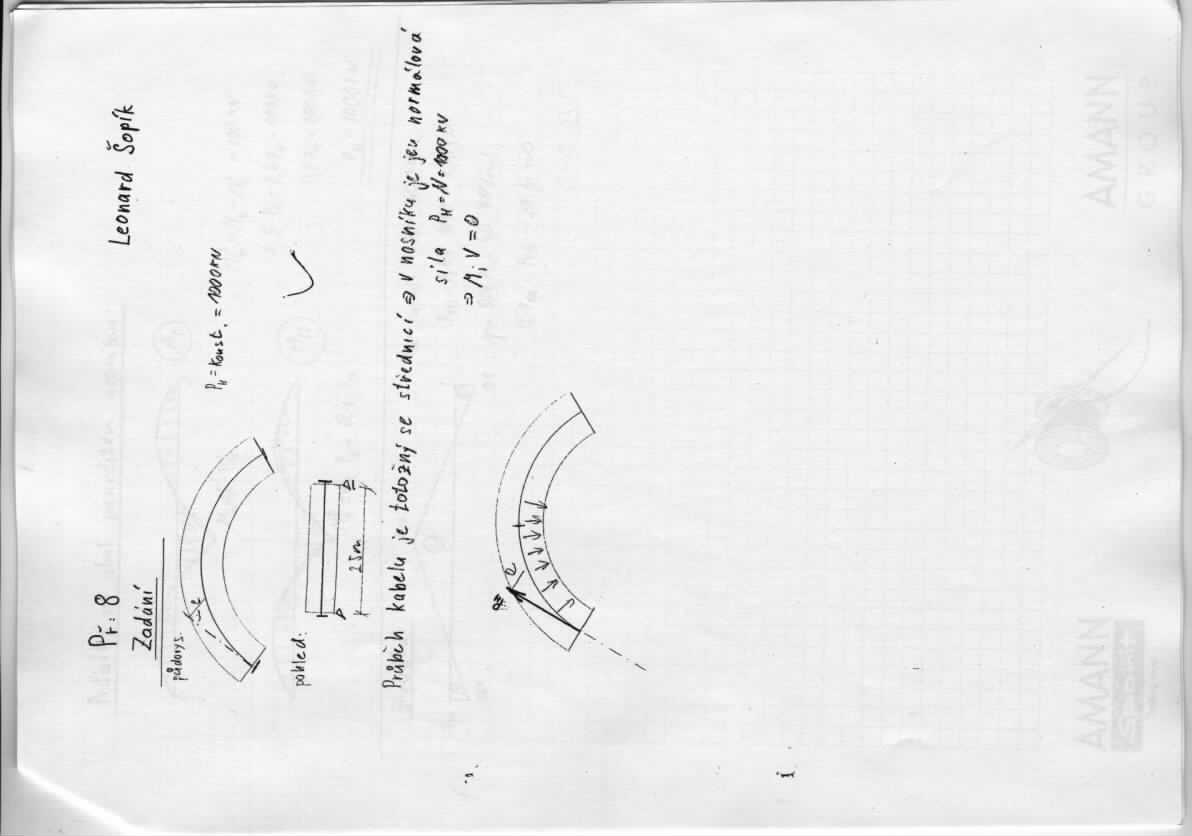 Leonard Šopík
Př: 8
Zadání
půdorys:
P_H = konst. = 1000 kN
pohled:
25m
Průběh kabelu je totožný se střednicí ⇒ v nosníku je jen normálová
síla P_H = N = 1000 kN
⇒ M; V = 0
AMANN
GROUP
AMANN